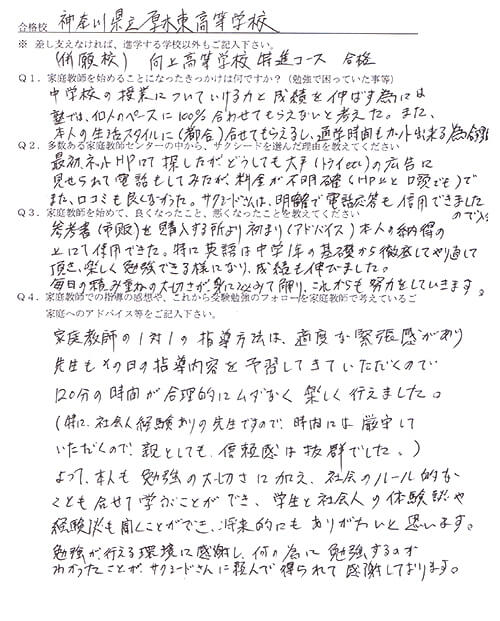 合格校 神奈川県立厚木東高等学校
※ 差し支えなければ、進学する学校以外もご記入下さい。
(併願校) 向上高等学校 特進コース 合格
Q1．家庭教師を始めることになったきっかけは何ですか？（勉強で困っていた事等）
中学校の授業についていける力と成績を伸ばす為には
塾では、個人のペースに100%合わせてもらえないと考えた。また、
本人の生活スタイルに(都合)合せてもらえるし、通学時間もカット出来る為合理的
Q2．多数ある家庭教師センターの中から、サクシードを選んだ理由を教えてください
最初、ネットHPにて探したがどうしても大手(トライetc)の広告に
見せられて電話もしてみたが、料金が不明確(HP上と口頭でも)で
また、口コミも良くなかった。サクシードさんは、明瞭で電話応答も信用できました
ので
Q3．家庭教師を始めて、良くなったこと、悪くなったことを教えてください
参考書(市販)を購入する所より初まり(アドバイス)本人の納得の
上にて使用できた。特に英語は中学1年の基礎から徹底してやり直して
頂き、楽しく勉強できる様になり、成績も伸びました。
毎日の積み重ねの大切さが身に沁みて解り、これからも努力をしていきます。
Q4．家庭教師での指導の感想や、これから受験勉強のフォローを家庭教師で考えているご
家庭へのアドバイス等をご記入下さい。
家庭教師の1対1の指導方法は、適度な緊張感があり
先生もその日の指導内容を予習してきていただくので
120分の時間が合理的にムダなく楽しく行えました。
(特に、社会人経験ありの先生ですので、時間には厳守して
いただくので、親としても、信頼感は抜群でした。)
よって、本人も勉強の大切さに加え、社会のルール的な
ことも合せて学ぶことができ、学生と社会人の体験談や
経験談も聞くことができ、将来的にもありがたいと思います。
勉強が行える環境に感謝し、何の為に勉強するのか
わかったことが、サクシードさんに頼んで得られて感謝しております。